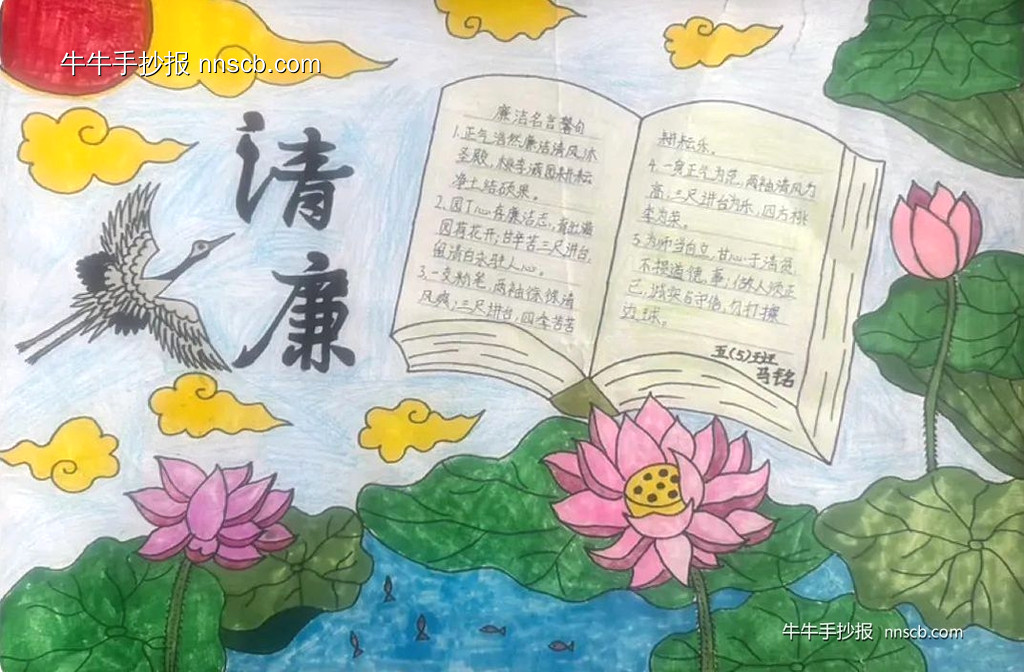 牛牛手抄报 nnscb.com
清
廉
廉洁名言警句
1.正气浩然廉洁清风,冰
圣殿,桃李满园耕耘
净土结硕果。
2.园丁心存廉洁志,育出满
园荷花开;甘辛苦三尺讲台,
留清白实驻人心。
3.一支粉笔,两袖
风
三尺讲台,四季苦苦
耕耘乐。
4.一身正气为范,两袖清风为
高,三尺讲台为乐,四方桃
李为荣。
5.为师当自立,甘心于清贫,
不损道德,事;做人须正
己,诚实与守信,勿打擦
边球。
五(5)班
马铭
牛牛手抄报 nnscb.com